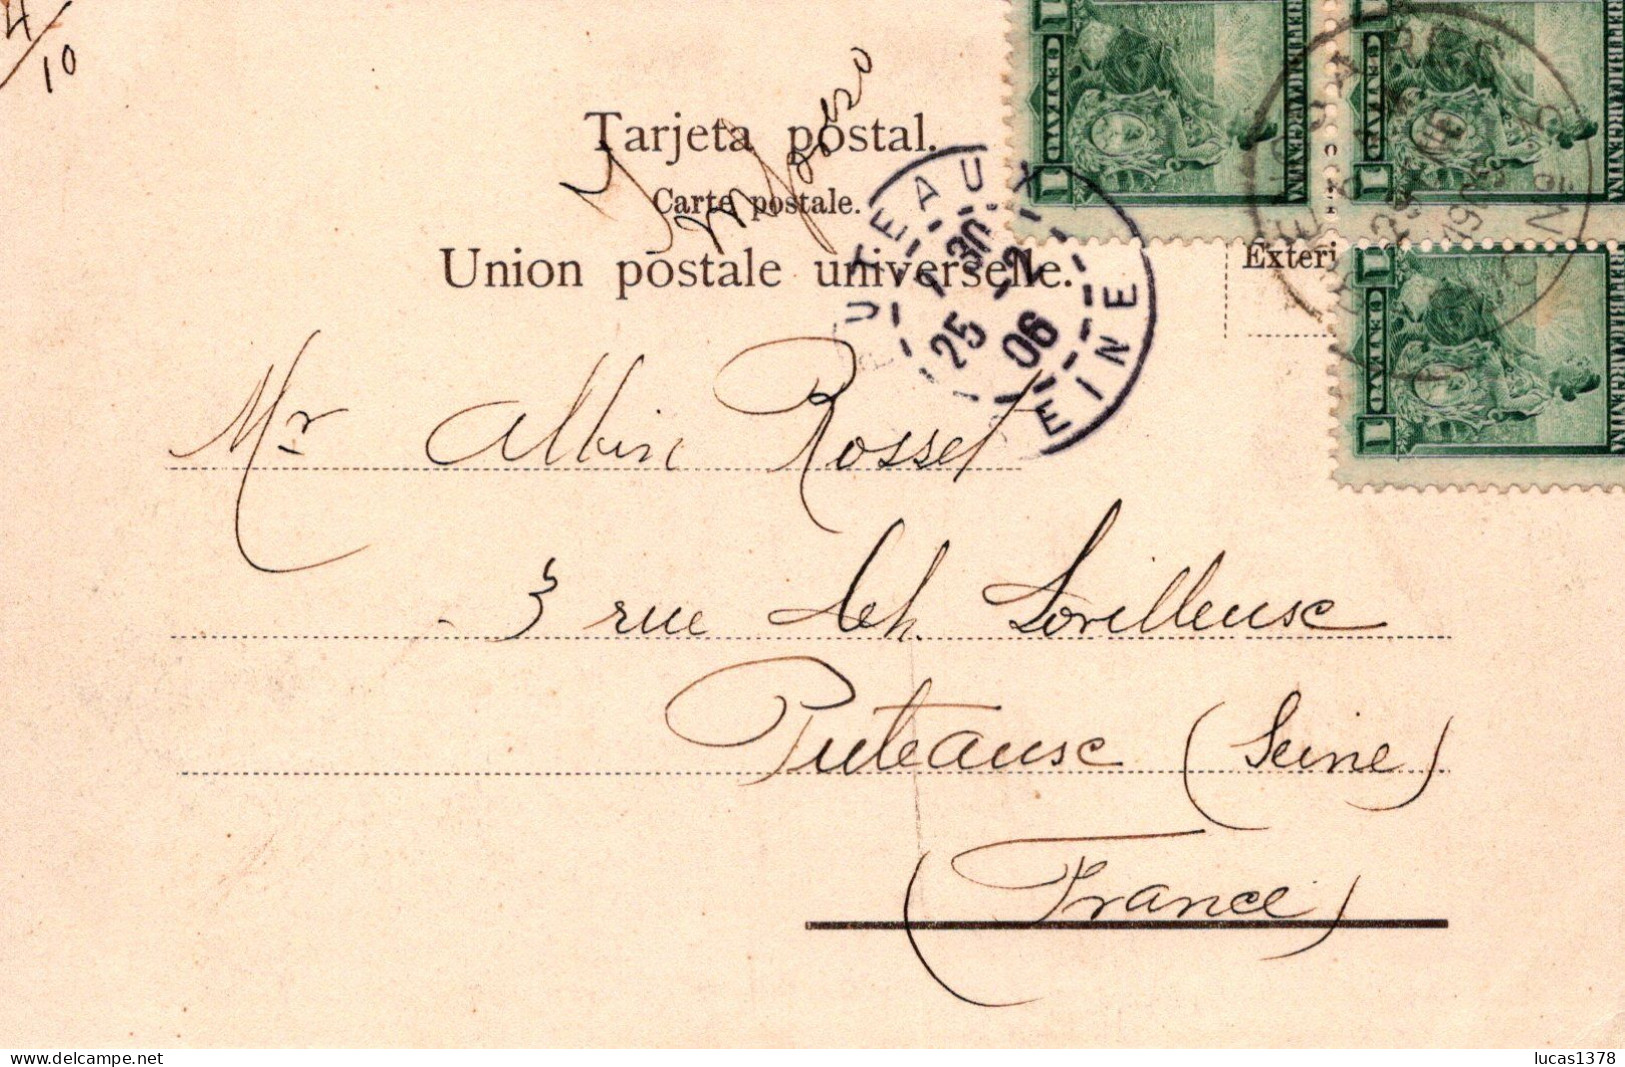 4/10
Tarjeta postal.
Carte postale.
Union postale universelle.
Exteri
PUTEAUX
7 30
25 -2
06
SEINE
1 CENTAVO
REPUBLICA ARGENTINA
1 CENTAVO
REPUBLICA ARGENTINA
1 CENTAVO
REPUBLICA ARGENTINA
BUENOS AIRES
Mr Albin Rosset
3 rue Ch. Lorilleux
Puteaux (Seine)
(France)
delcampe.net
lucas1378